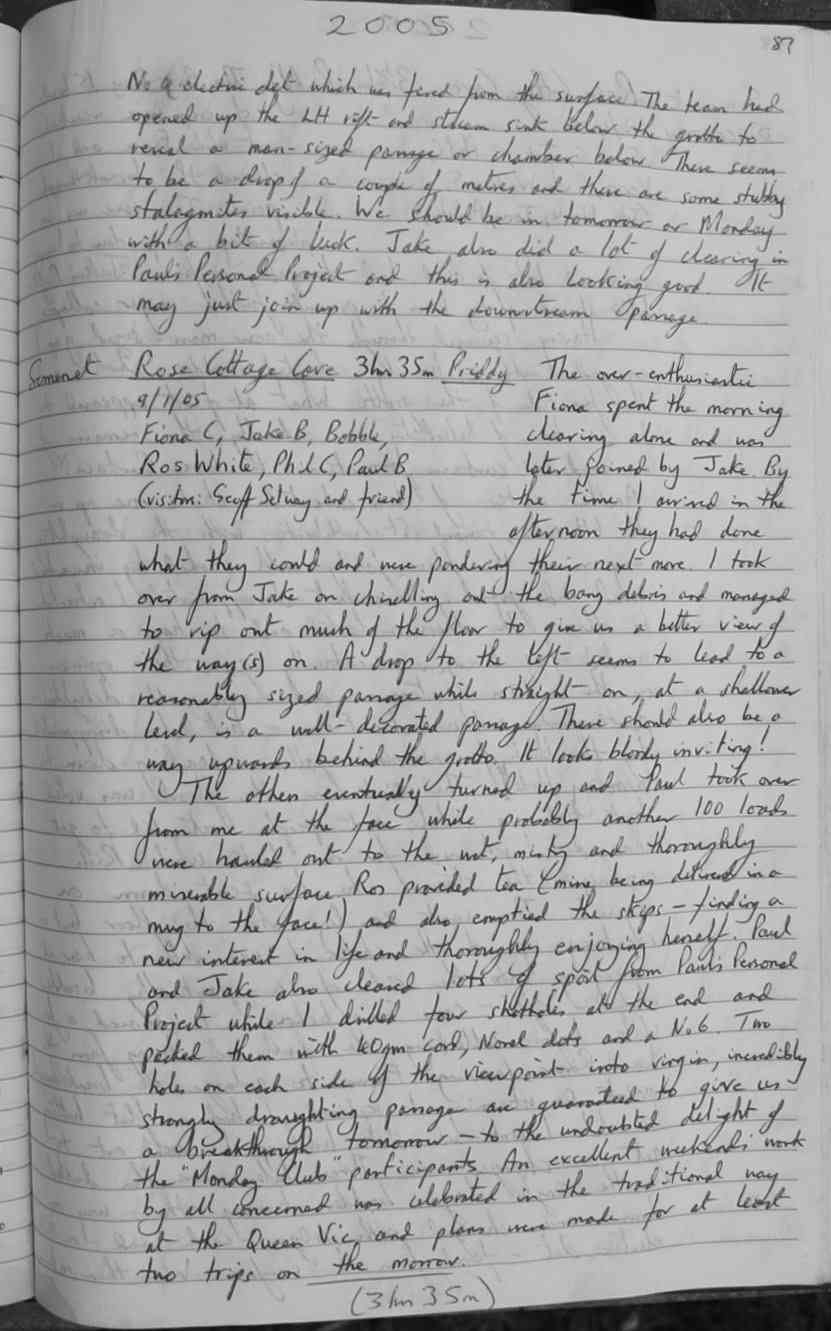 2005
87
No 6 electric det which was fired from the surface. The team had
opened up the LH rift and stream sink below the grotto to
reveal a man-sized passage or chamber below. There seems
to be a drop of a couple of metres and there are some stubby
stalagmites visible. We should be in tomorrow or Monday
with a bit of luck. Jake also did a lot of clearing in
Paul's Personal Project and this is also looking good. It
may just join up with the downstream passage.
Somerset Rose Cottage Cave 3hr 35m Priddy The over-enthusiastic
9/1/05 Fiona spent the morning
Fiona C, Jake B, Bobble, clearing alone and was
Ros White, Phil C, Paul B. later joined by Jake. By
(visitors: Geoff Selway and friend) the time I arrived in the
afternoon they had done
what they could and were pondering their next move. I took
over from Jake on chiselling out the bang debris and managed
to rip out much of the floor to give us a better view of
the way(s) on. A drop to the left seems to lead to a
reasonably sized passage while straight on, at a shallower
level, is a well-decorated passage. There should also be a
way upwards behind the grotto. It looks bloody inviting!
The others eventually turned up and Paul took over
from me at the face while probably another 100 loads
were hauled out to the wet, misty and thoroughly
miserable surface. Ros provided tea (mine being delivered in a
mug to the face!) and also emptied the skips - finding a
new interest in life and thoroughly enjoying herself. Paul
and Jake also cleared lots of spoil from Paul's Personal
Project while I drilled four shotholes at the end and
packed them with 40gm cord, Nonel dets and a No.6. Two
holes on each side of the viewpoint into virgin, incredibly
strongly draughting passage are guaranteed to give us
a breakthrough tomorrow - to the undoubted delight of
the "Monday Club" participants. An excellent weekends work
by all concerned was celebrated in the traditional way
at the Queen Vic, and plans were made for at least
two trips on the morrow.
(3hr 35m)